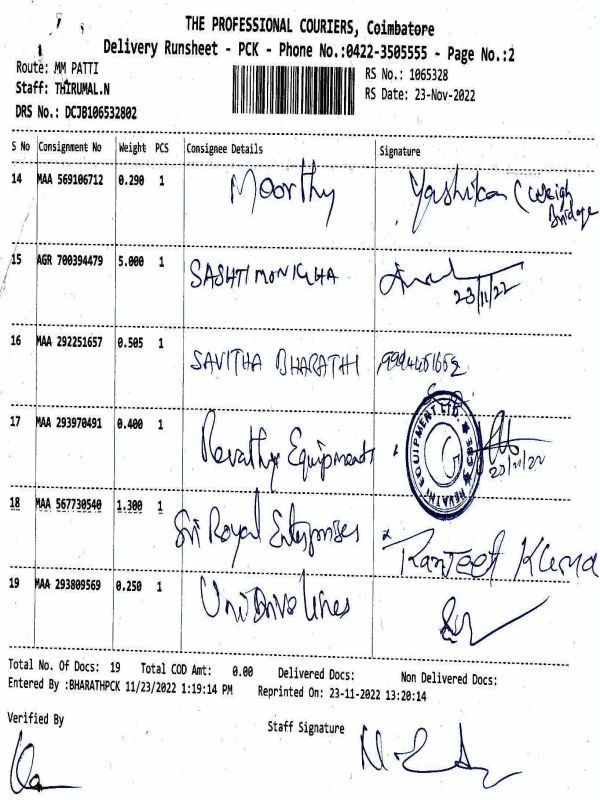 THE PROFESSIONAL COURIERS, Coimbatore
Delivery Runsheet - PCK - Phone No.:0422-3505555 - Page No.:2
Route: MM PATTI
RS No.: 1065328
Staff: THIRUMAL.N
RS Date: 23-Nov-2022
DRS No.: DCJB106532802
S No Consignment No Weight PCS Consignee Details Signature
14 MAA 569106712 0.290 1 Moorthy Yashika (Weigh
Bridge
15 AGR 700394479 5.000 1 SASHTI MONIKHA
23/11/22
16 MAA 292251657 0.505 1 SAVITHA BHARATHI
17 MAA 293970491 0.400 1 Revathy Equipments
REVATHI EQUIPMENT LTD.
23/11/22
18 MAA 567730540 1.300 1 Sri Royal Enterprises Ranjeet Kuma
19 MAA 293809569 0.250 1 Uni Drive Lines
Total No. Of Docs: 19 Total COD Amt: 0.00 Delivered Docs: Non Delivered Docs:
Entered By :BHARATHPCK 11/23/2022 1:19:14 PM Reprinted On: 23-11-2022 13:20:14
Verified By Staff Signature